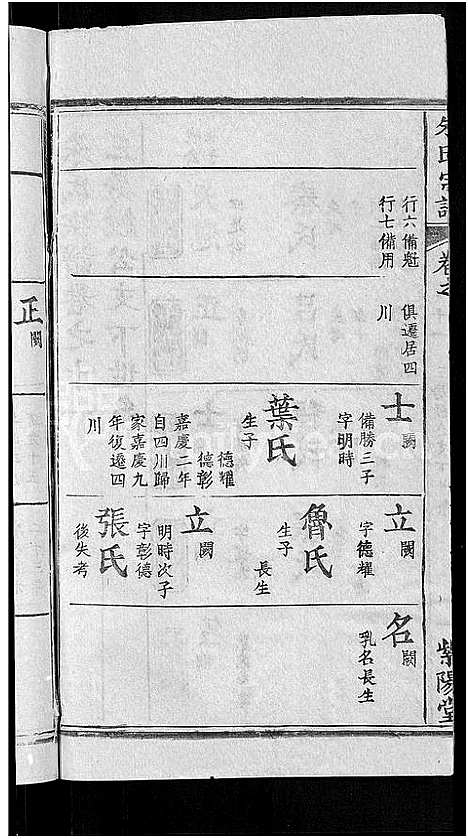 朱氏宗譜
卷之
紫陽堂
行六備魁
行七備用
俱遷居四
川
士闕
備勝三子
字明時
葉氏
生子
德耀
德彰
嘉慶二年
自四川歸
家嘉慶九
年復遷四
川
立闕
字德耀
魯氏
生子
長生
立闕
明時次子
字彰德
張氏
後失考
名闕
乳名長生
正闕